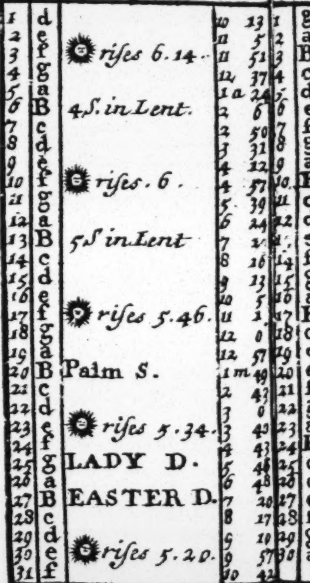 1 d 10 13 1
2 e 11 5 2
3 f rises 6.14. 11 51 3
4 g 12 37 4
5 a 1 a 24 5
6 B 4 S. in Lent. 2 6 6
7 c 2 50 7
8 d 3 31 8
9 e 4 12 9
10 f rises. 6. 4 57 10
11 g 5 39 11
12 a 6 24 12
13 B 5 S in Lent 7 13
14 c 8 16 14
15 d 9 13 15
16 e 10 5 16
17 f rises 5.46. 11 17
18 g 12 0 18
19 a 12 57 19
20 B Palm S. 1 m 49 20
21 c 2 43 21
22 d 3 22
23 e rises 5.34. 3 23
24 f 4 43 24
25 g LADY D. 5 46 25
26 a 6 48 26
27 B EASTER D. 7 20 27
28 c 8 17 28
29 d 9 10 29
30 e rises 5.20. 9 57 30
31 f 10 42